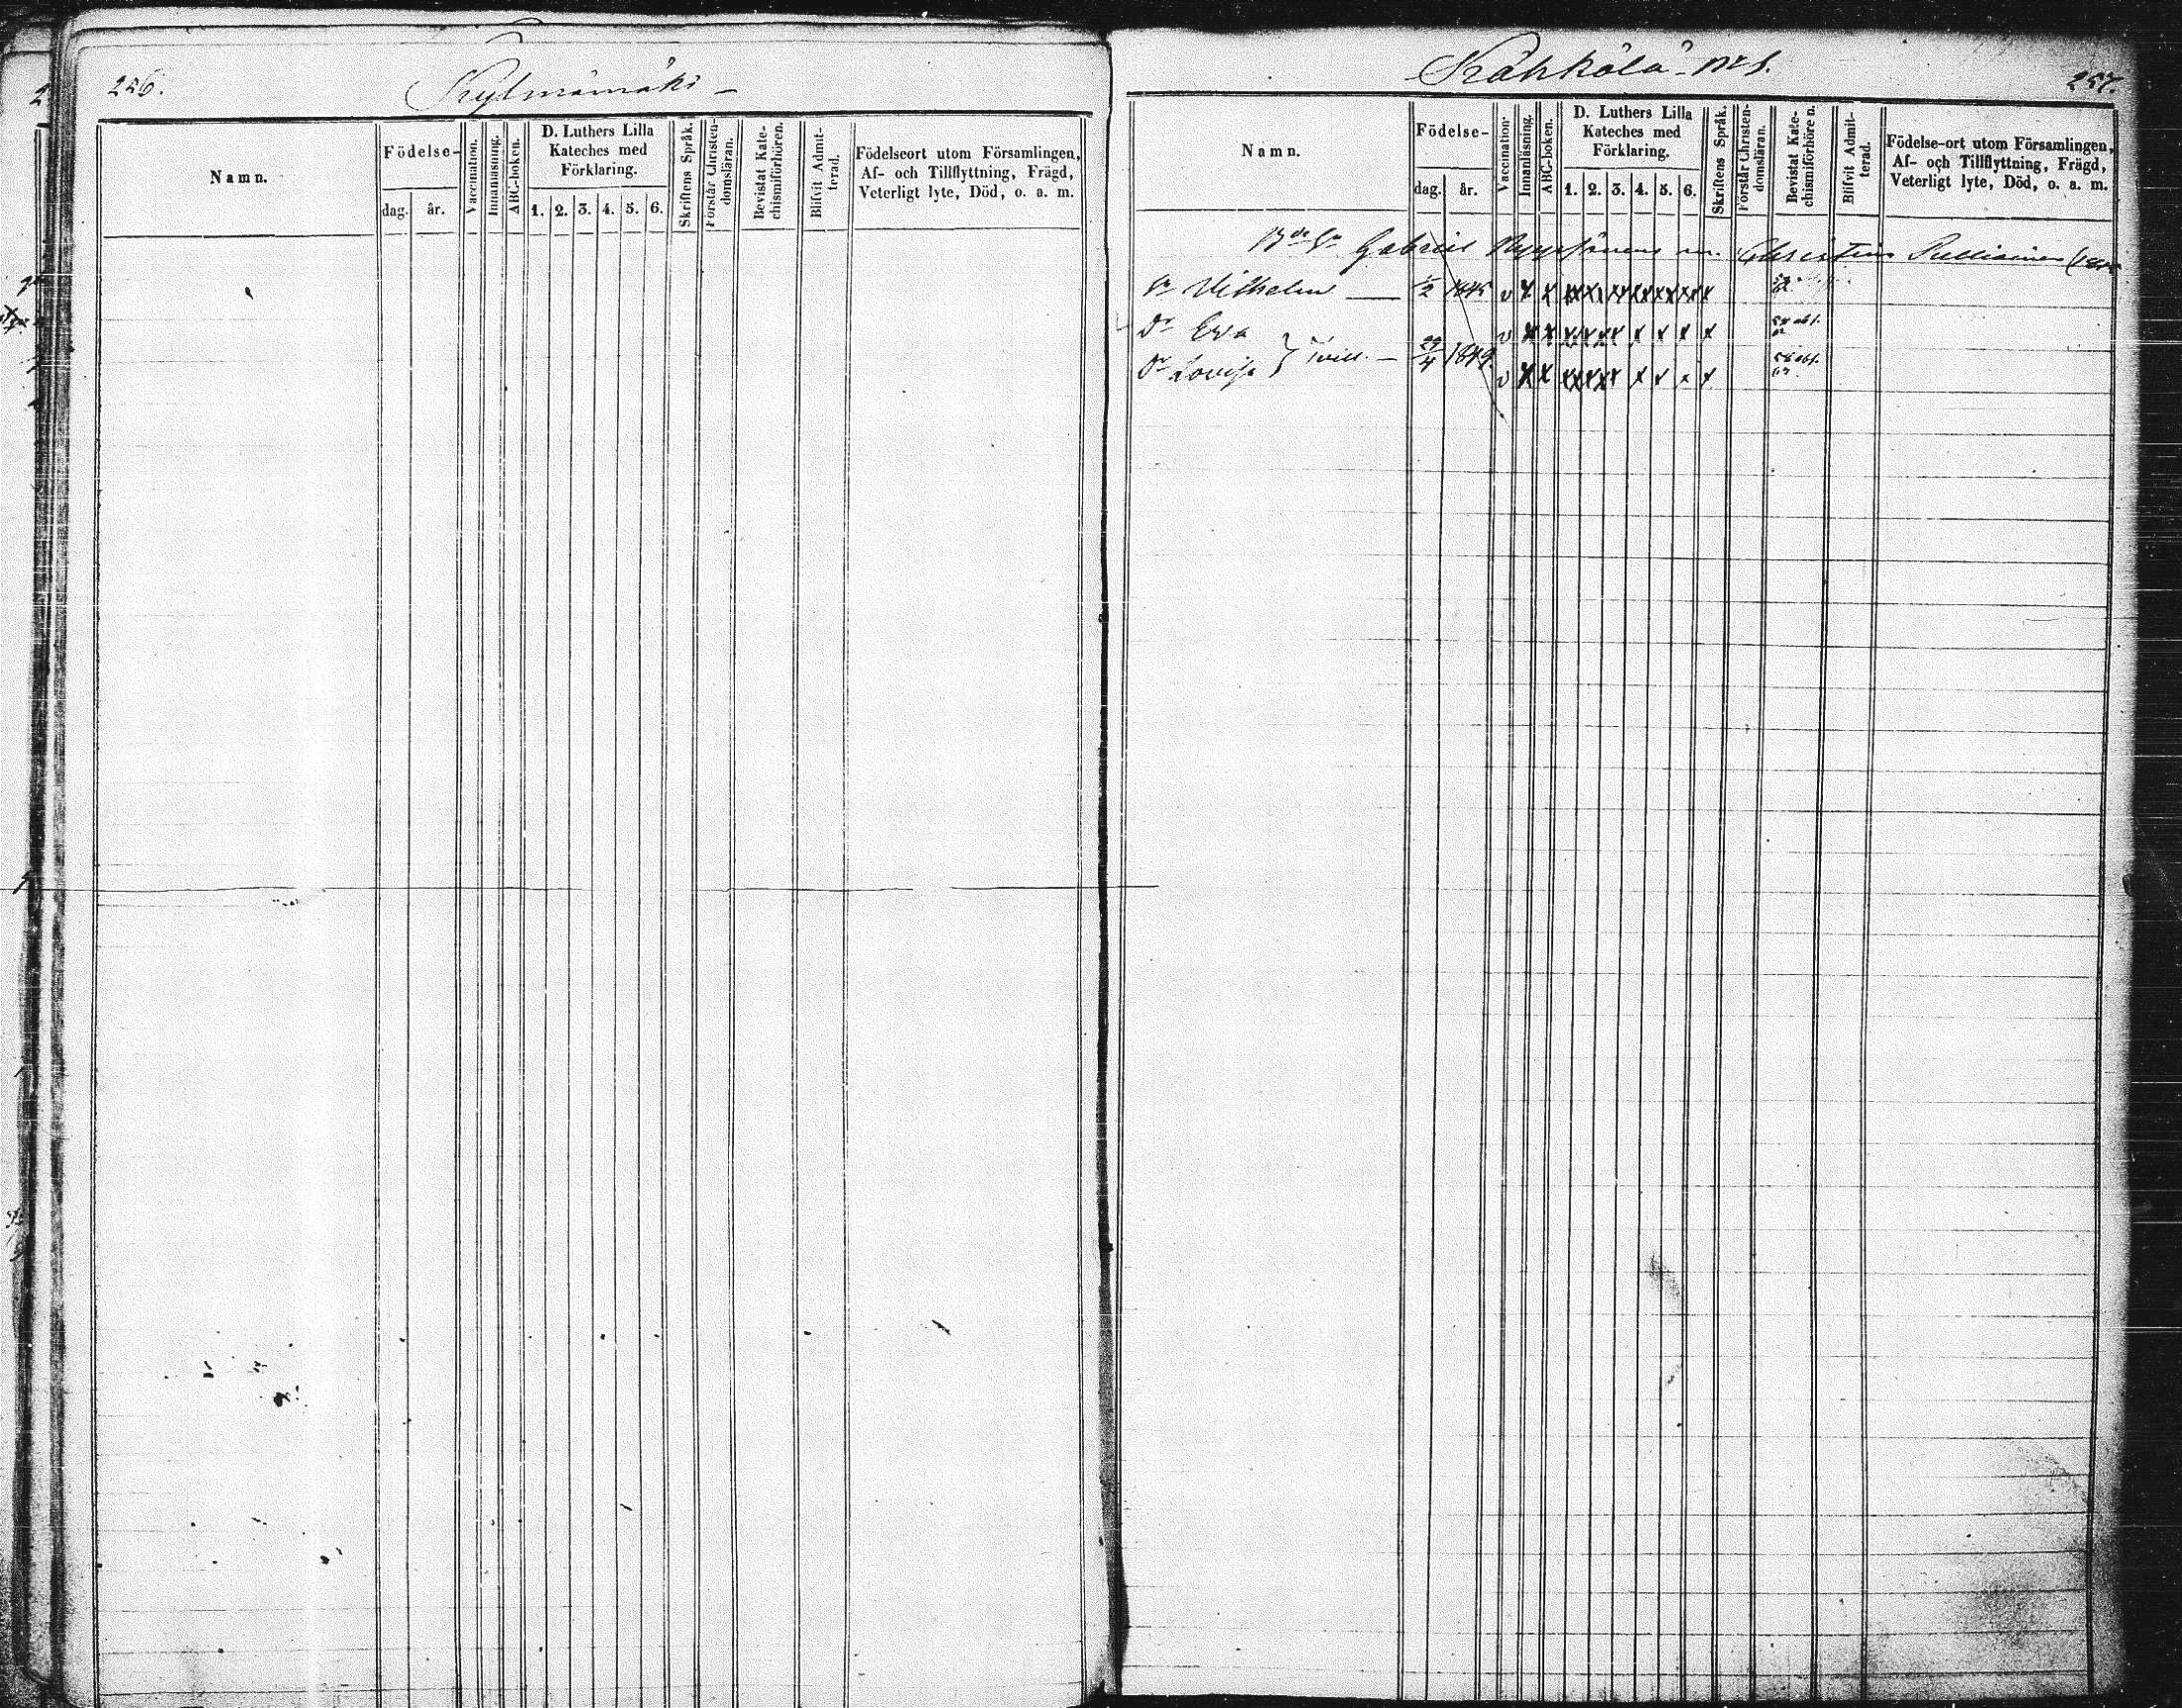 256.
Kylmämäki
Namn.
Födelse-
dag.
år.
Vaccination.
Innanläsning.
ABC-boken.
D. Luthers Lilla
Kateches med
Förklaring.
1. 2. 3. 4. 5. 6.
Skriftens Språk.
Förstår Christen-
domsläran.
Bevistat Kate-
chismiförhören.
Blifvit Admit-
terad.
Födelseort utom Församlingen,
Af- och Tillflyttning, Frägd,
Veterligt lyte, Död, o. a. m.
Kähkölä N:o 1.
257.
Namn.
Födelse-
dag.
år.
Vaccination.
Innanläsning.
ABC-boken.
D. Luthers Lilla
Kateches med
Förklaring.
1. 2. 3. 4. 5. 6.
Skriftens Språk.
Förstår Christen-
domsläran.
Bevistat Kate-
chismiförhören.
Blifvit Admit-
terad.
Födelse-ort utom Församlingen,
Af- och Tillflyttning, Frägd,
Veterligt lyte, Död, o. a. m.
Gabriel Christina Pulliainen
Sn Vilhelm 1/2 1845 v x x
Dr Eva v x x
Dr Lovisa } Tvill. 29/4 1849. v x x